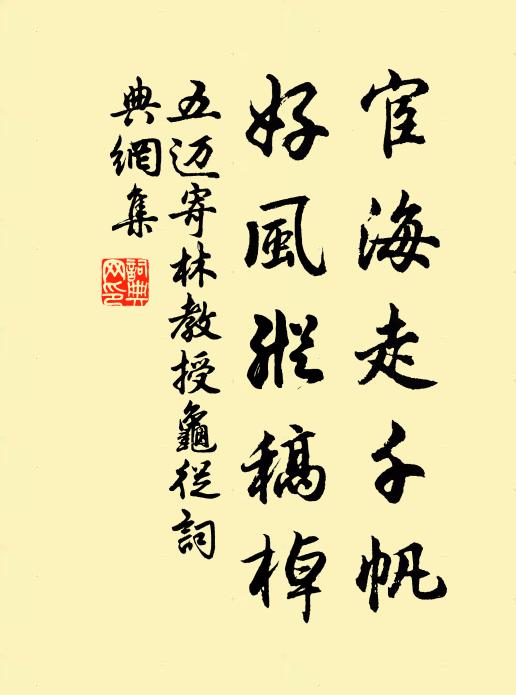 宦海走千帆
好風縱稿棹
五迈寄林教授龜從詞
典網集
詞典
网印